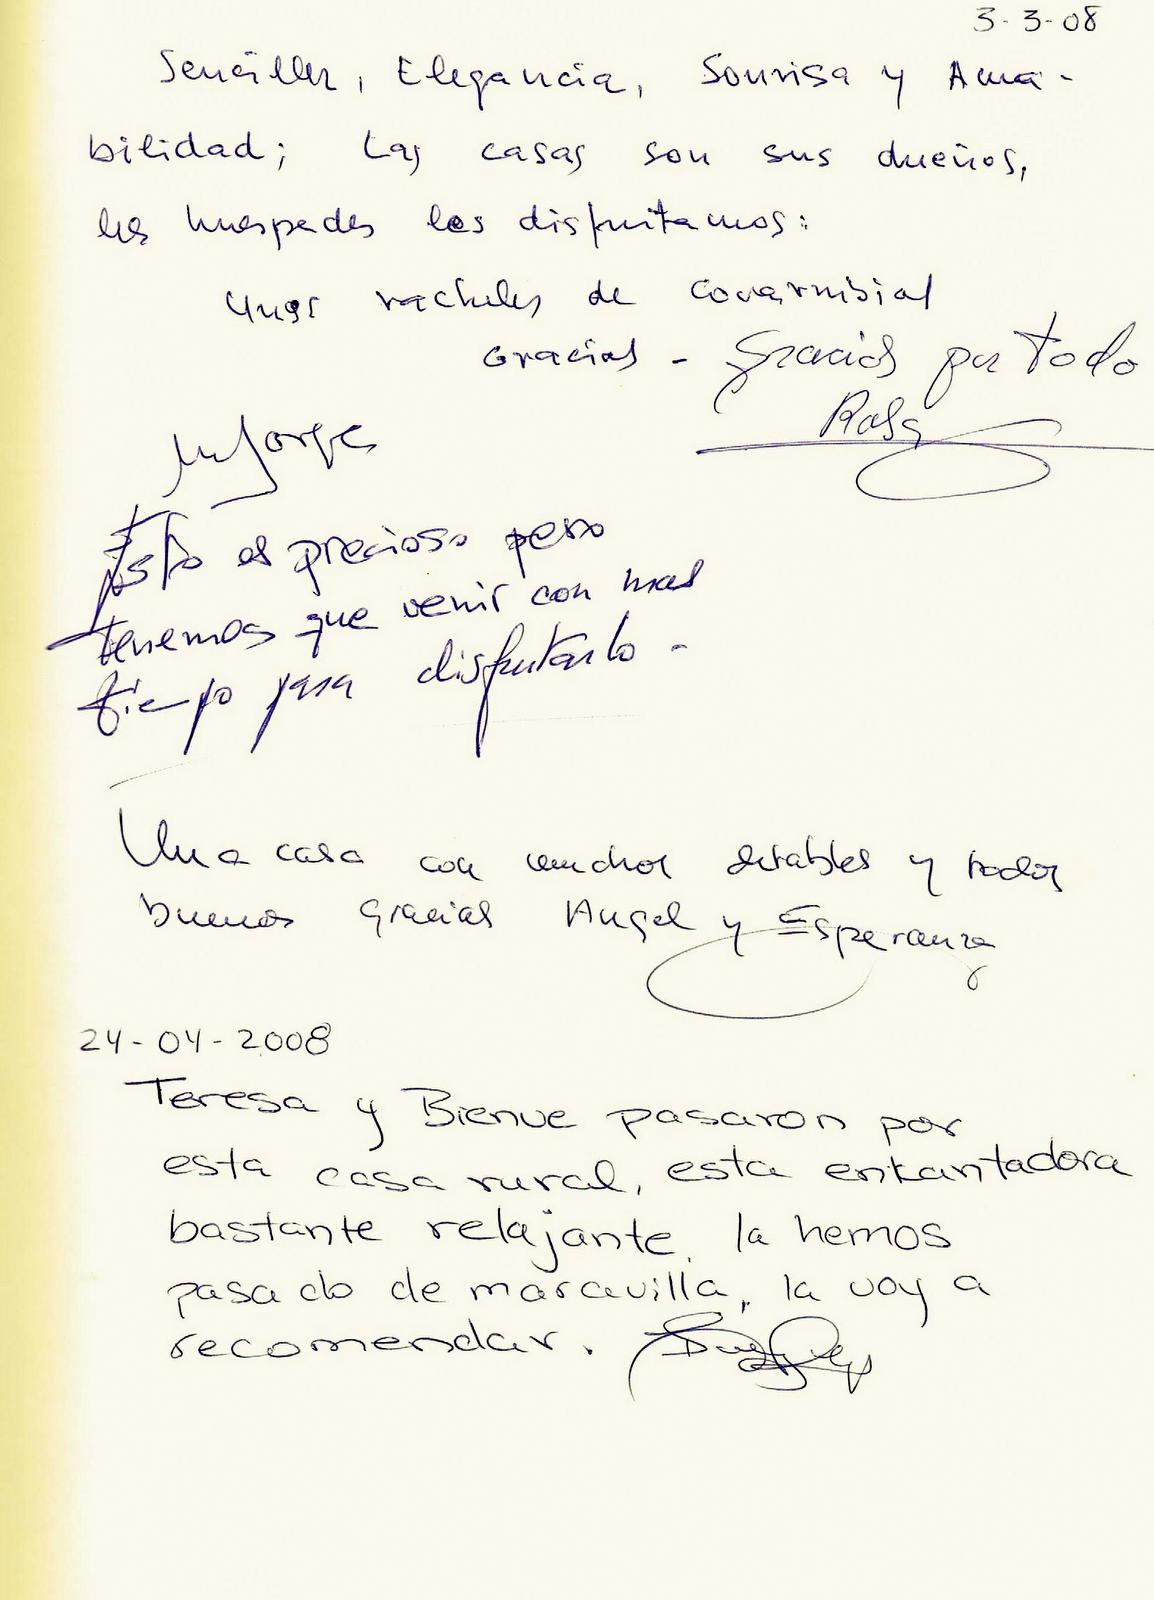 3-3-08
Sencillez, Elegancia, Sonrisa y Ama-
bilidad; Las casas son sus dueños,
los huespedes las disfrutamos:
Unos de
Gracias - Gracias por todo
Rosa
Jorge
Esto es precioso pero
tenemos que venir con mas
tiempo para disfrutarlo -
Una casa con muchos detalles y todos
buenos Gracias Angel y Esperanza
24-04-2008
Teresa y Bienve pasaron por
esta casa rural, esta enkantadora
bastante relajante, la hemos
pasado de maravilla, la voy a
recomendar.